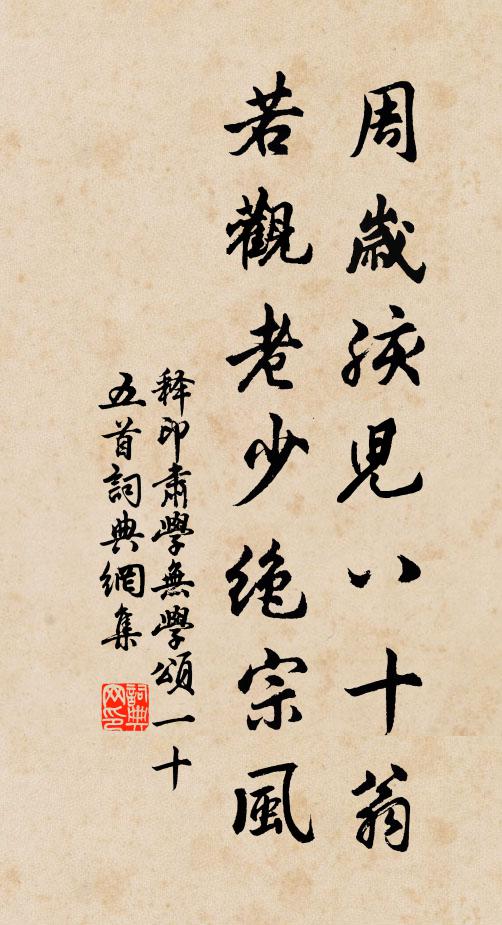 周歲孩兒八十翁
若觀老少绝宗風
释印肃學無學頌一十
五首詞典網集
詞典网印